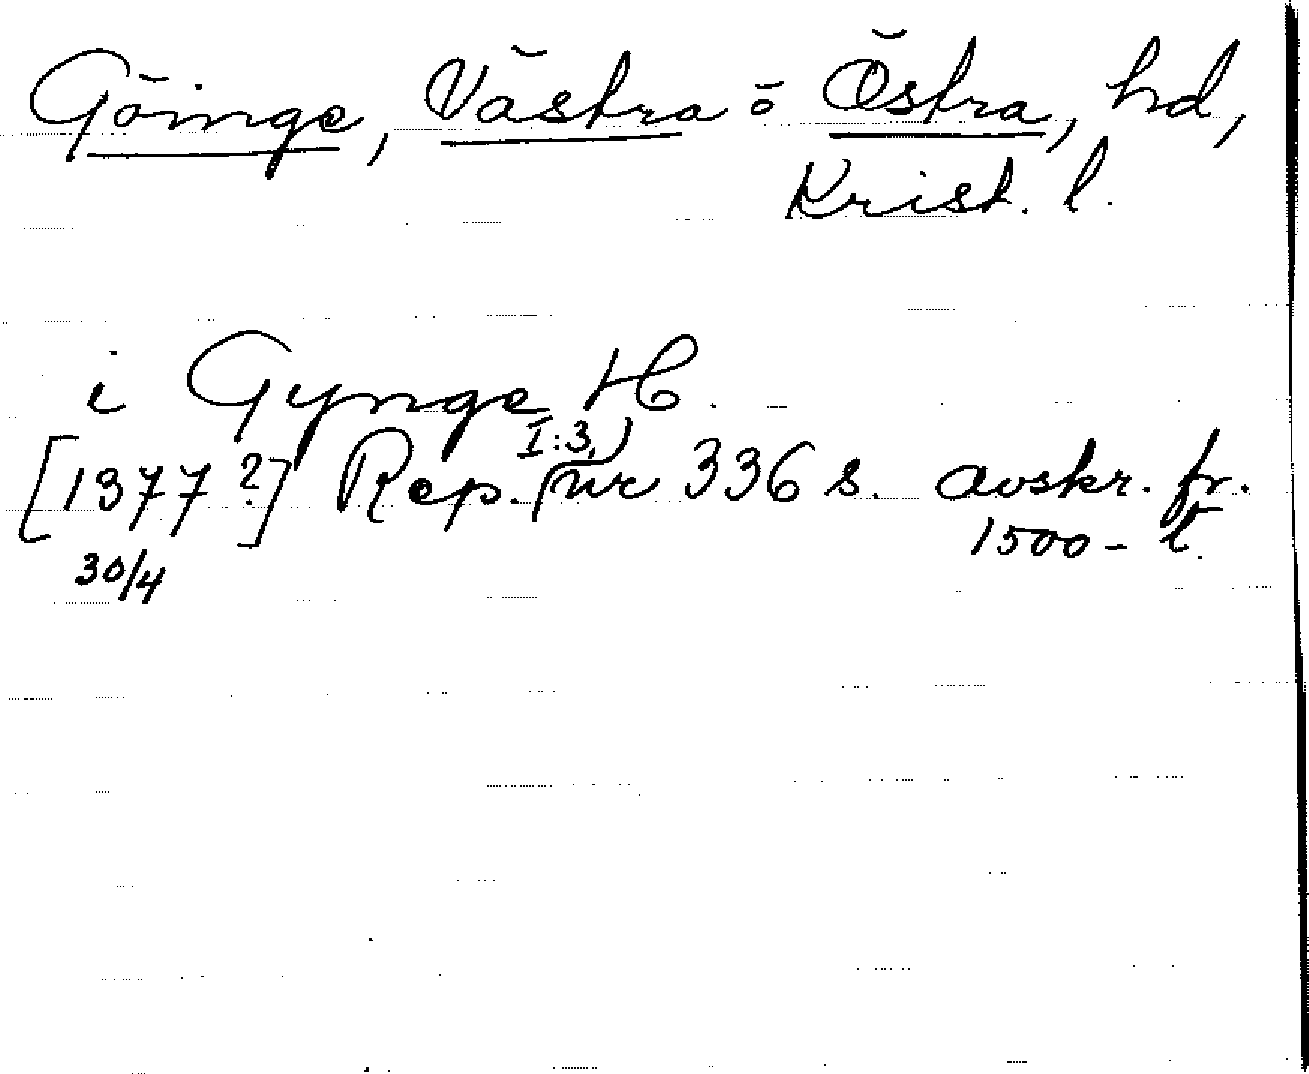 Göinge, Västra o Östra, hd,
Krist. l.
i Gynge H.
[1377?] Rep. (I:3,) nr 336 s. avskr. fr.
30/4 1500-t.